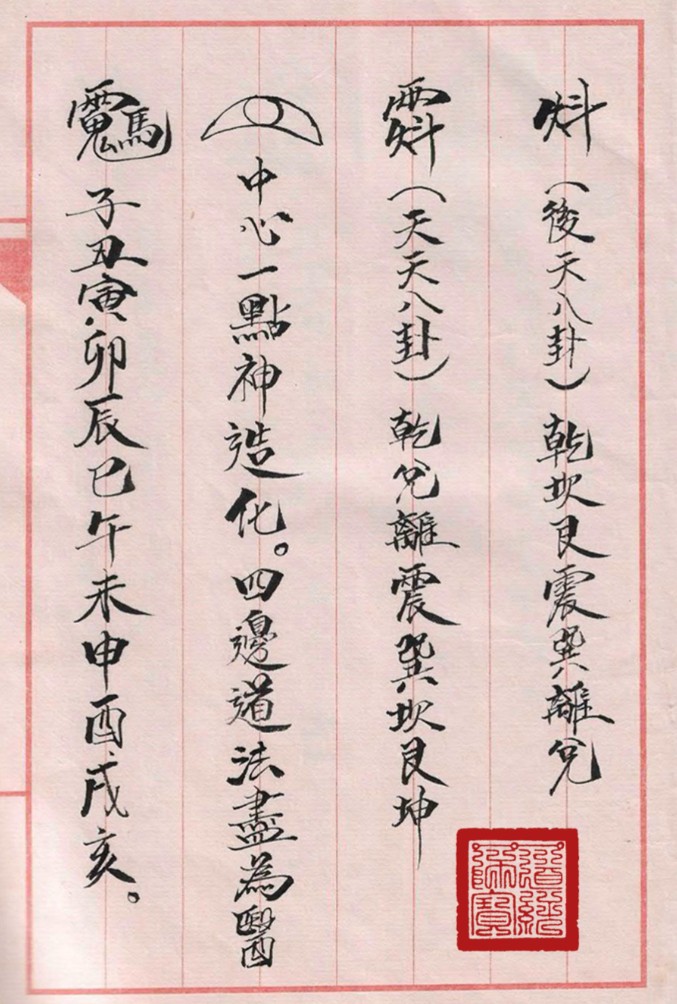 炓(後天八卦)乾坎艮震巽離兌
(天天八卦)乾兌離震巽坎艮坤
中心一點神造化。四邊道法盡為醫
子丑寅卯辰巳午未申酉戌亥。
道經師寶